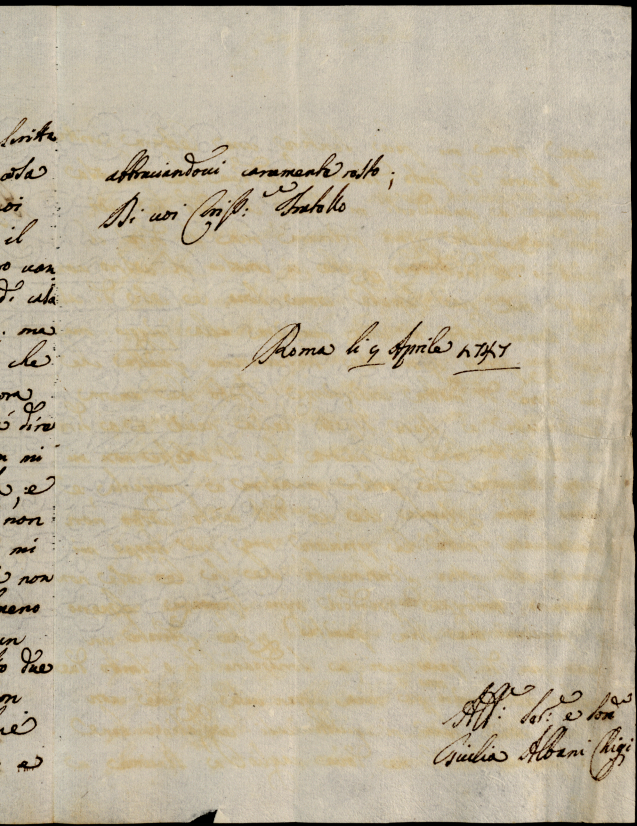 scritta
cosa
voi
il
o uon
di casa
. ma
che
ora
dire
n mi
, e
non
mi
non
meno
un
o due
on
e
abbraciandovi caramente resto ;
Di voi Cariss:mo Fratello
Roma li 9 Aprile 1747
Aff:ma Ser:a e Sor.a
Giulia Albani Chigi